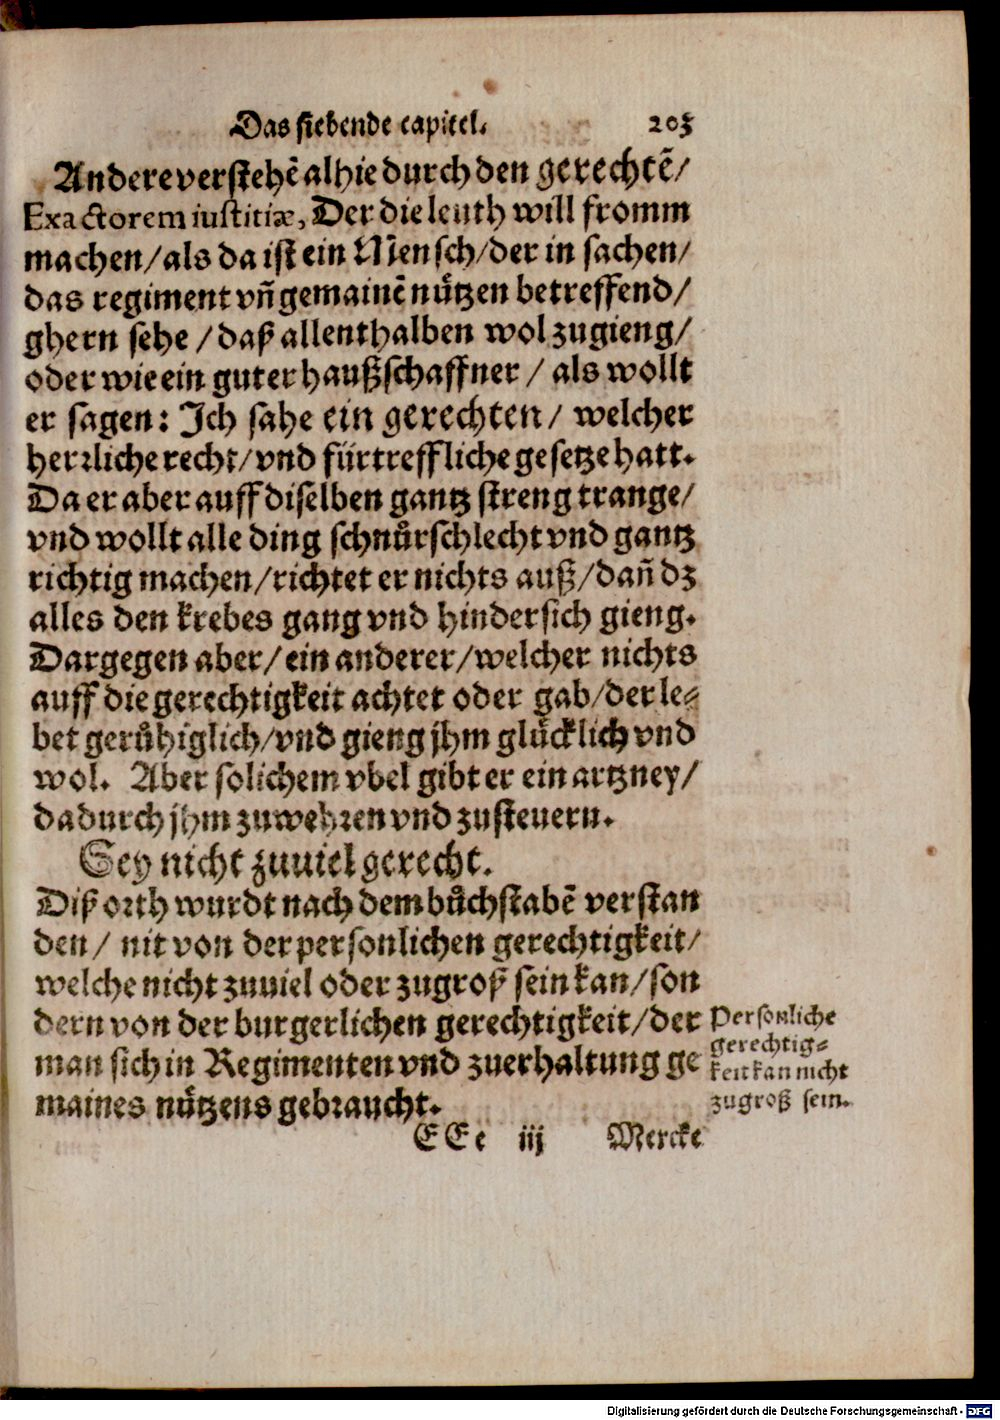 Das siebende capitel. 203
Andere verstehē alhie durch den gerechtē/
Exactorem iustitiæ, Der die leuth will fromm
machen/als da ist ein Mensch/der in sachen/
das regiment vñ gemainē nützen betreffend/
ghern sehe/daß allenthalben wol zugieng/
oder wie ein guter haußschaffner/als wollt
er sagen: Ich sahe ein gerechten/welcher
herrliche recht/vnd fürtreffliche gesetze hatt.
Da er aber auff diselben gantz streng trange/
vnd wollt alle ding schnůrschlecht vnd gantz
richtig machen/richtet er nichts auß/dañ dz
alles den krebes gang vnd hindersich gieng.
Dargegen aber/ein anderer/welcher nichts
auff die gerechtigkeit achtet oder gab/der le⸗
bet gerůhiglich/vnd gieng jhm glücklich vnd
wol. Aber solichem vbel gibt er ein artzney/
dadurch jhm zuwehren vnd zusteuern.
Sey nicht zuuiel gerecht.
Diß orth wurdt nach dem bůchstabē verstan
den/nit von der personlichen gerechtigkeit/
welche nicht zuuiel oder zugroß sein kan/son
dern von der burgerlichen gerechtigkeit/der
man sich in Regimenten vnd zuerhaltung ge
maines nützens gebraucht.
Personliche
gerechtig⸗
keit kan nicht
zugroß sein.
EEe iij Mercke
Digitalisierung gefördert durch die Deutsche Forschungsgemeinschaft - DFG